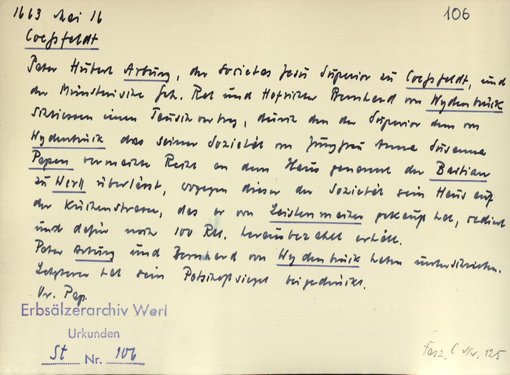 1663 Mai 16
106
Coeßfeldt
Pater Hubert Arburg, der Societas Jesu Superior zu Coeßfeldt, und
der Münsterische Geh. Rat und Hofrichter Bernhard von Wydenbrück
schliessen einen Tauschvertrag, durch den der Superior dem von
Wydenbrück das seiner Sozietät von Jungfrau Anna Susanna
Papen vermachte Recht an dem Haus genannt der Bastian
zu Werll überlässt, wogegen dieser der Sozietät sein Haus auf
der Küchenstrasse, das er von gekauft hat, cediert
und dafür noch 100 Rtl. herausbezahlt erhält.
Pater Arburg und Bernhard von Wydenbrück haben unterschrieben.
Letzterer hat sein Petschaftsiegel beigedrückt.
Or. Pap.
Erbsälzerarchiv Werl
Urkunden
St Nr. 106
Fasz. C Nr. 125